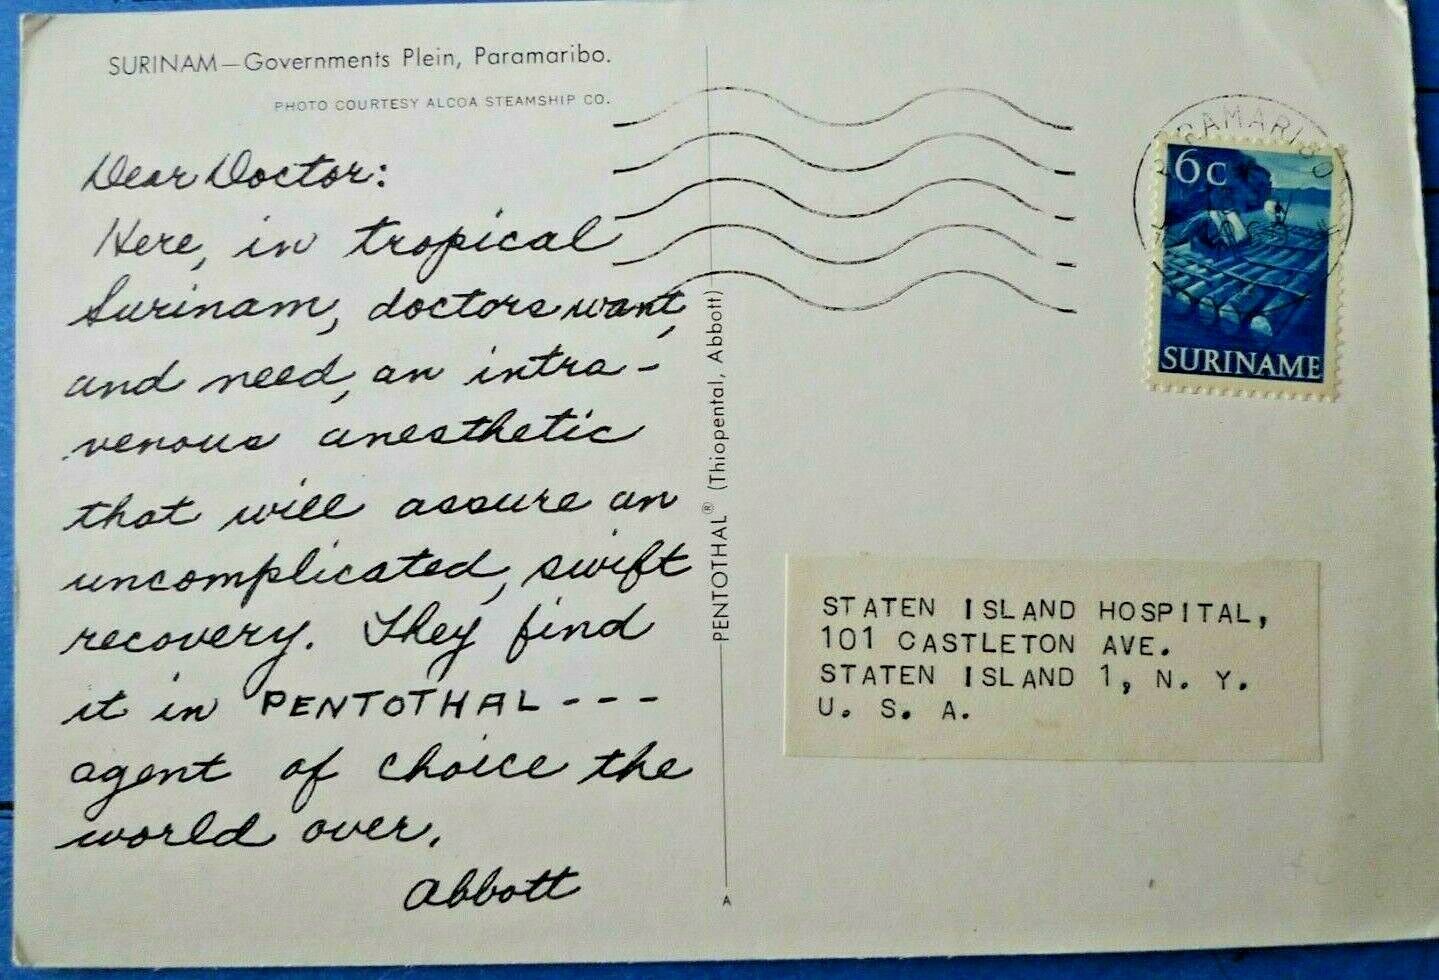 SURINAM—Governments Plein, Paramaribo.
PHOTO COURTESY ALCOA STEAMSHIP CO.
Dear Doctor:
Here, in tropical
Surinam, doctors want,
and need, an intra-
venous anesthetic
that will assure an
uncomplicated, swift
recovery. They find
it in PENTOTHAL - - -
agent of choice the
world over.
Abbott
PENTOTHAL® (Thiopental, Abbott)
A
PARAMARIBO
6c
SURINAME
STATEN ISLAND HOSPITAL,
101 CASTLETON AVE.
STATEN ISLAND 1, N. Y.
U. S. A.